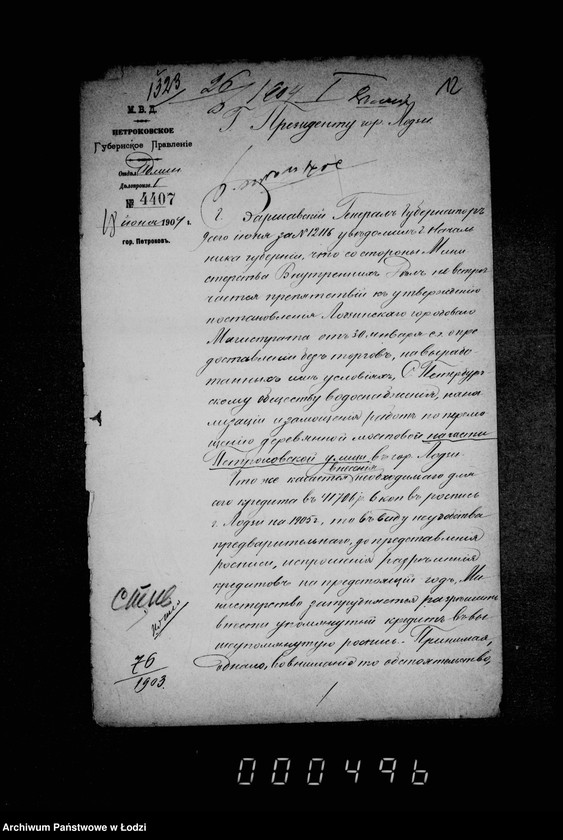 1323 26/1904 I 12
М. В. Д.
ПЕТРОКОВСКОЕ
Губернское Правленіе
Отдѣл.
Дѣлопроизв. I
№ 4407
18 іюня 1904 г.
гор. Петроковъ.
Г. Президенту гор. Лодзи.
г. Варшавскій Генералъ Губернаторъ
9 сего іюня за № 12116 увѣдомилъ г. Началь
ника губерніи, что со стороны Мини
стерства Внутреннихъ Дѣлъ не встрѣ
чается препятствій къ утвержденію
постановленія Лодзинскаго городоваго
Магистрата отъ 30 января с. г. о пре
доставленіи безъ торговъ, на вырабо
танныхъ имъ условіяхъ, С. Петербург
скому обществу водоснабженія, кана
лизаціи и замощенія работъ по
деревянной мостовой на части
Петроковской улицы въ гор. Лодзи.
Что же касается внесенія необходимаго для
сего кредита въ 41706 р. коп. въ роспись
г. Лодзи на 1905 г., то въ виду неудобства
предварительнаго, до представленія
росписи, испрошенія разрѣшенія
кредитовъ на предстоящій годъ, Ми
нистерство затрудняется разрѣшить
внести упомянутый кредитъ въ вы
шеупомянутую роспись. Принимая,
однако, во вниманіе то обстоятельство,
76
1903.
000496
Archiwum Państwowe w Łodzi